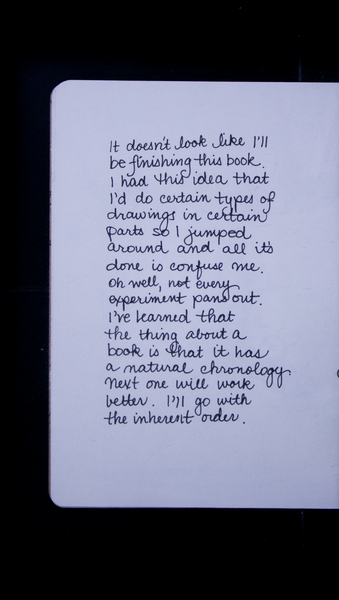 It doesn't look like I'll
be finishing this book.
I had this idea that
I'd do certain types of
drawings in certain
parts so I jumped
around and all it's
done is confuse me.
Oh well, not every
experiment pans out.
I've learned that
the thing about a
book is that it has
a natural chronology.
Next one will work
better. I'll go with
the inherent order.